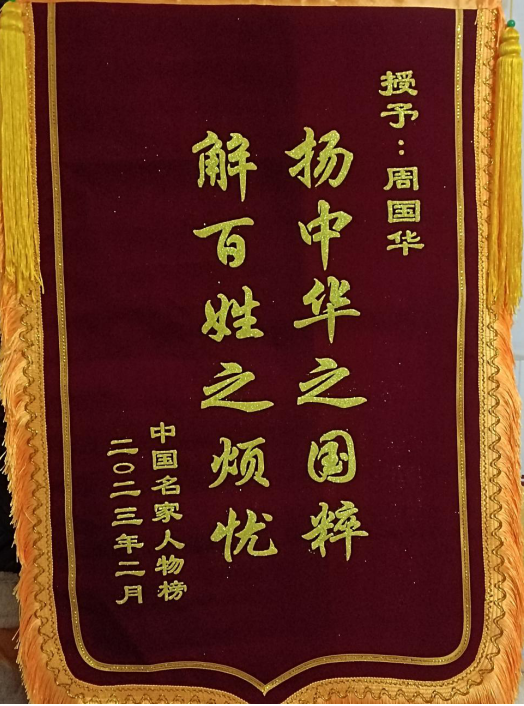 授予：周国华
扬中华之国粹
解百姓之烦忧
中国名家人物榜
二〇二三年二月